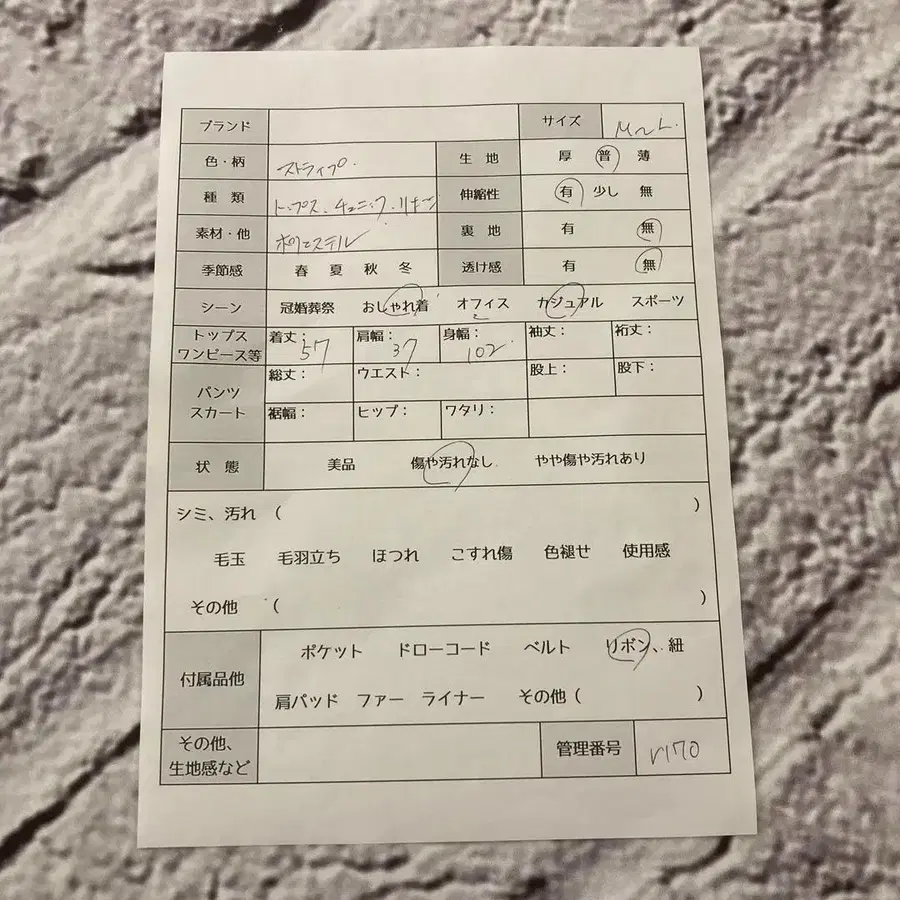 ブランド サイズ M~L.
色・柄 ストライプ. 生地 厚 普 薄
種類 トップス、チュニック、リネン 伸縮性 有 少し 無
素材・他 ポリエステル 裏地 有 無
季節感 春 夏 秋 冬 透け感 有 無
シーン 冠婚葬祭 おしゃれ着 オフィス カジュアル スポーツ
トップス
ワンピース等 着丈：57 肩幅：37 身幅：102. 袖丈： 裄丈：
パンツ
スカート 総丈： ウエスト： 股上： 股下：
裾幅： ヒップ： ワタリ：
状態 美品 傷や汚れなし やや傷や汚れあり
シミ、汚れ （ ）
毛玉 毛羽立ち ほつれ こすれ傷 色褪せ 使用感
その他 （ ）
付属品他 ポケット ドローコード ベルト リボン、紐
肩パッド ファー ライナー その他（ ）
その他、
生地感など 管理番号 r170